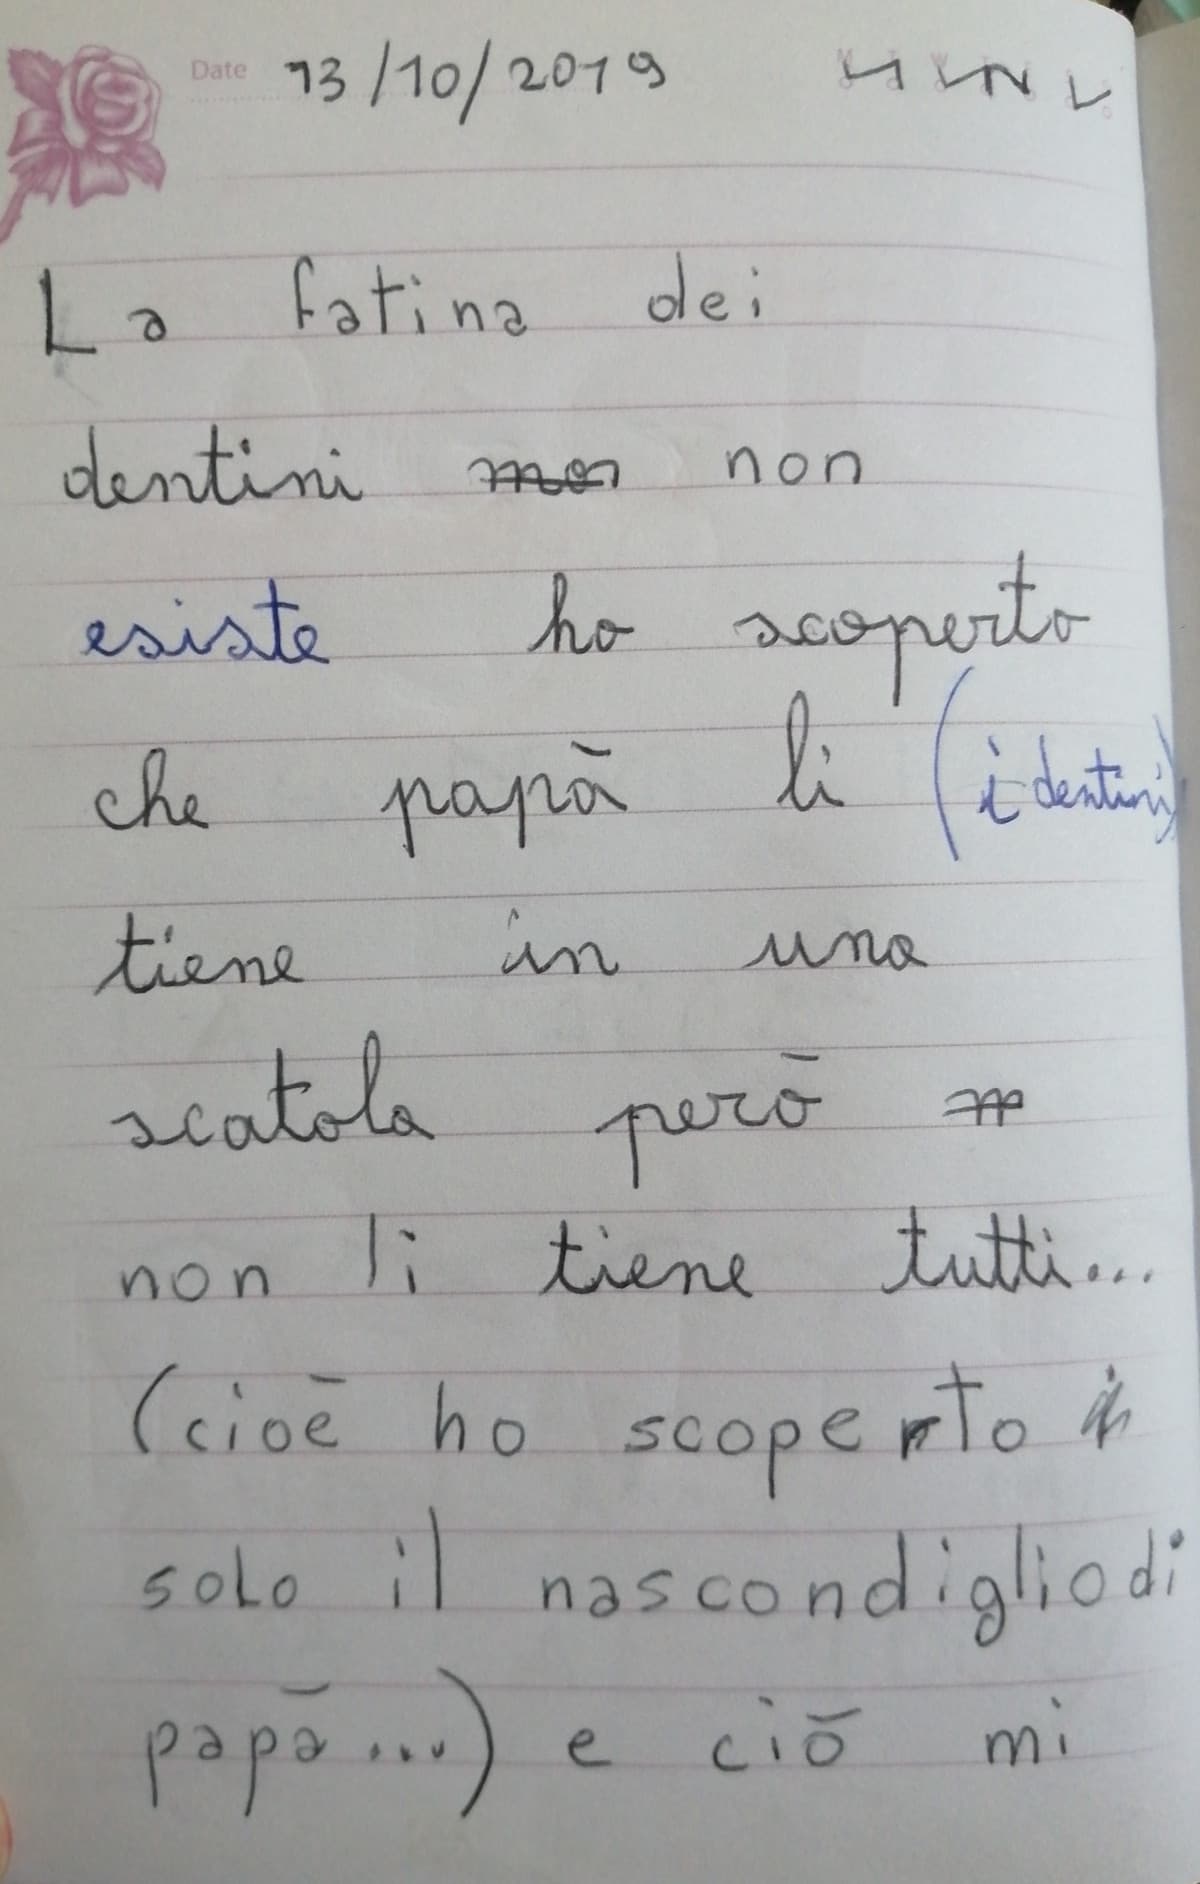 Date 13/10/2019
La fatina dei
dentini non
esiste ho scoperto
che papà li (i dentini)
tiene in una
scatola però
non li tiene tutti...
(cioè ho scoperto
solo il nascondiglio di
papà...) e ciò mi